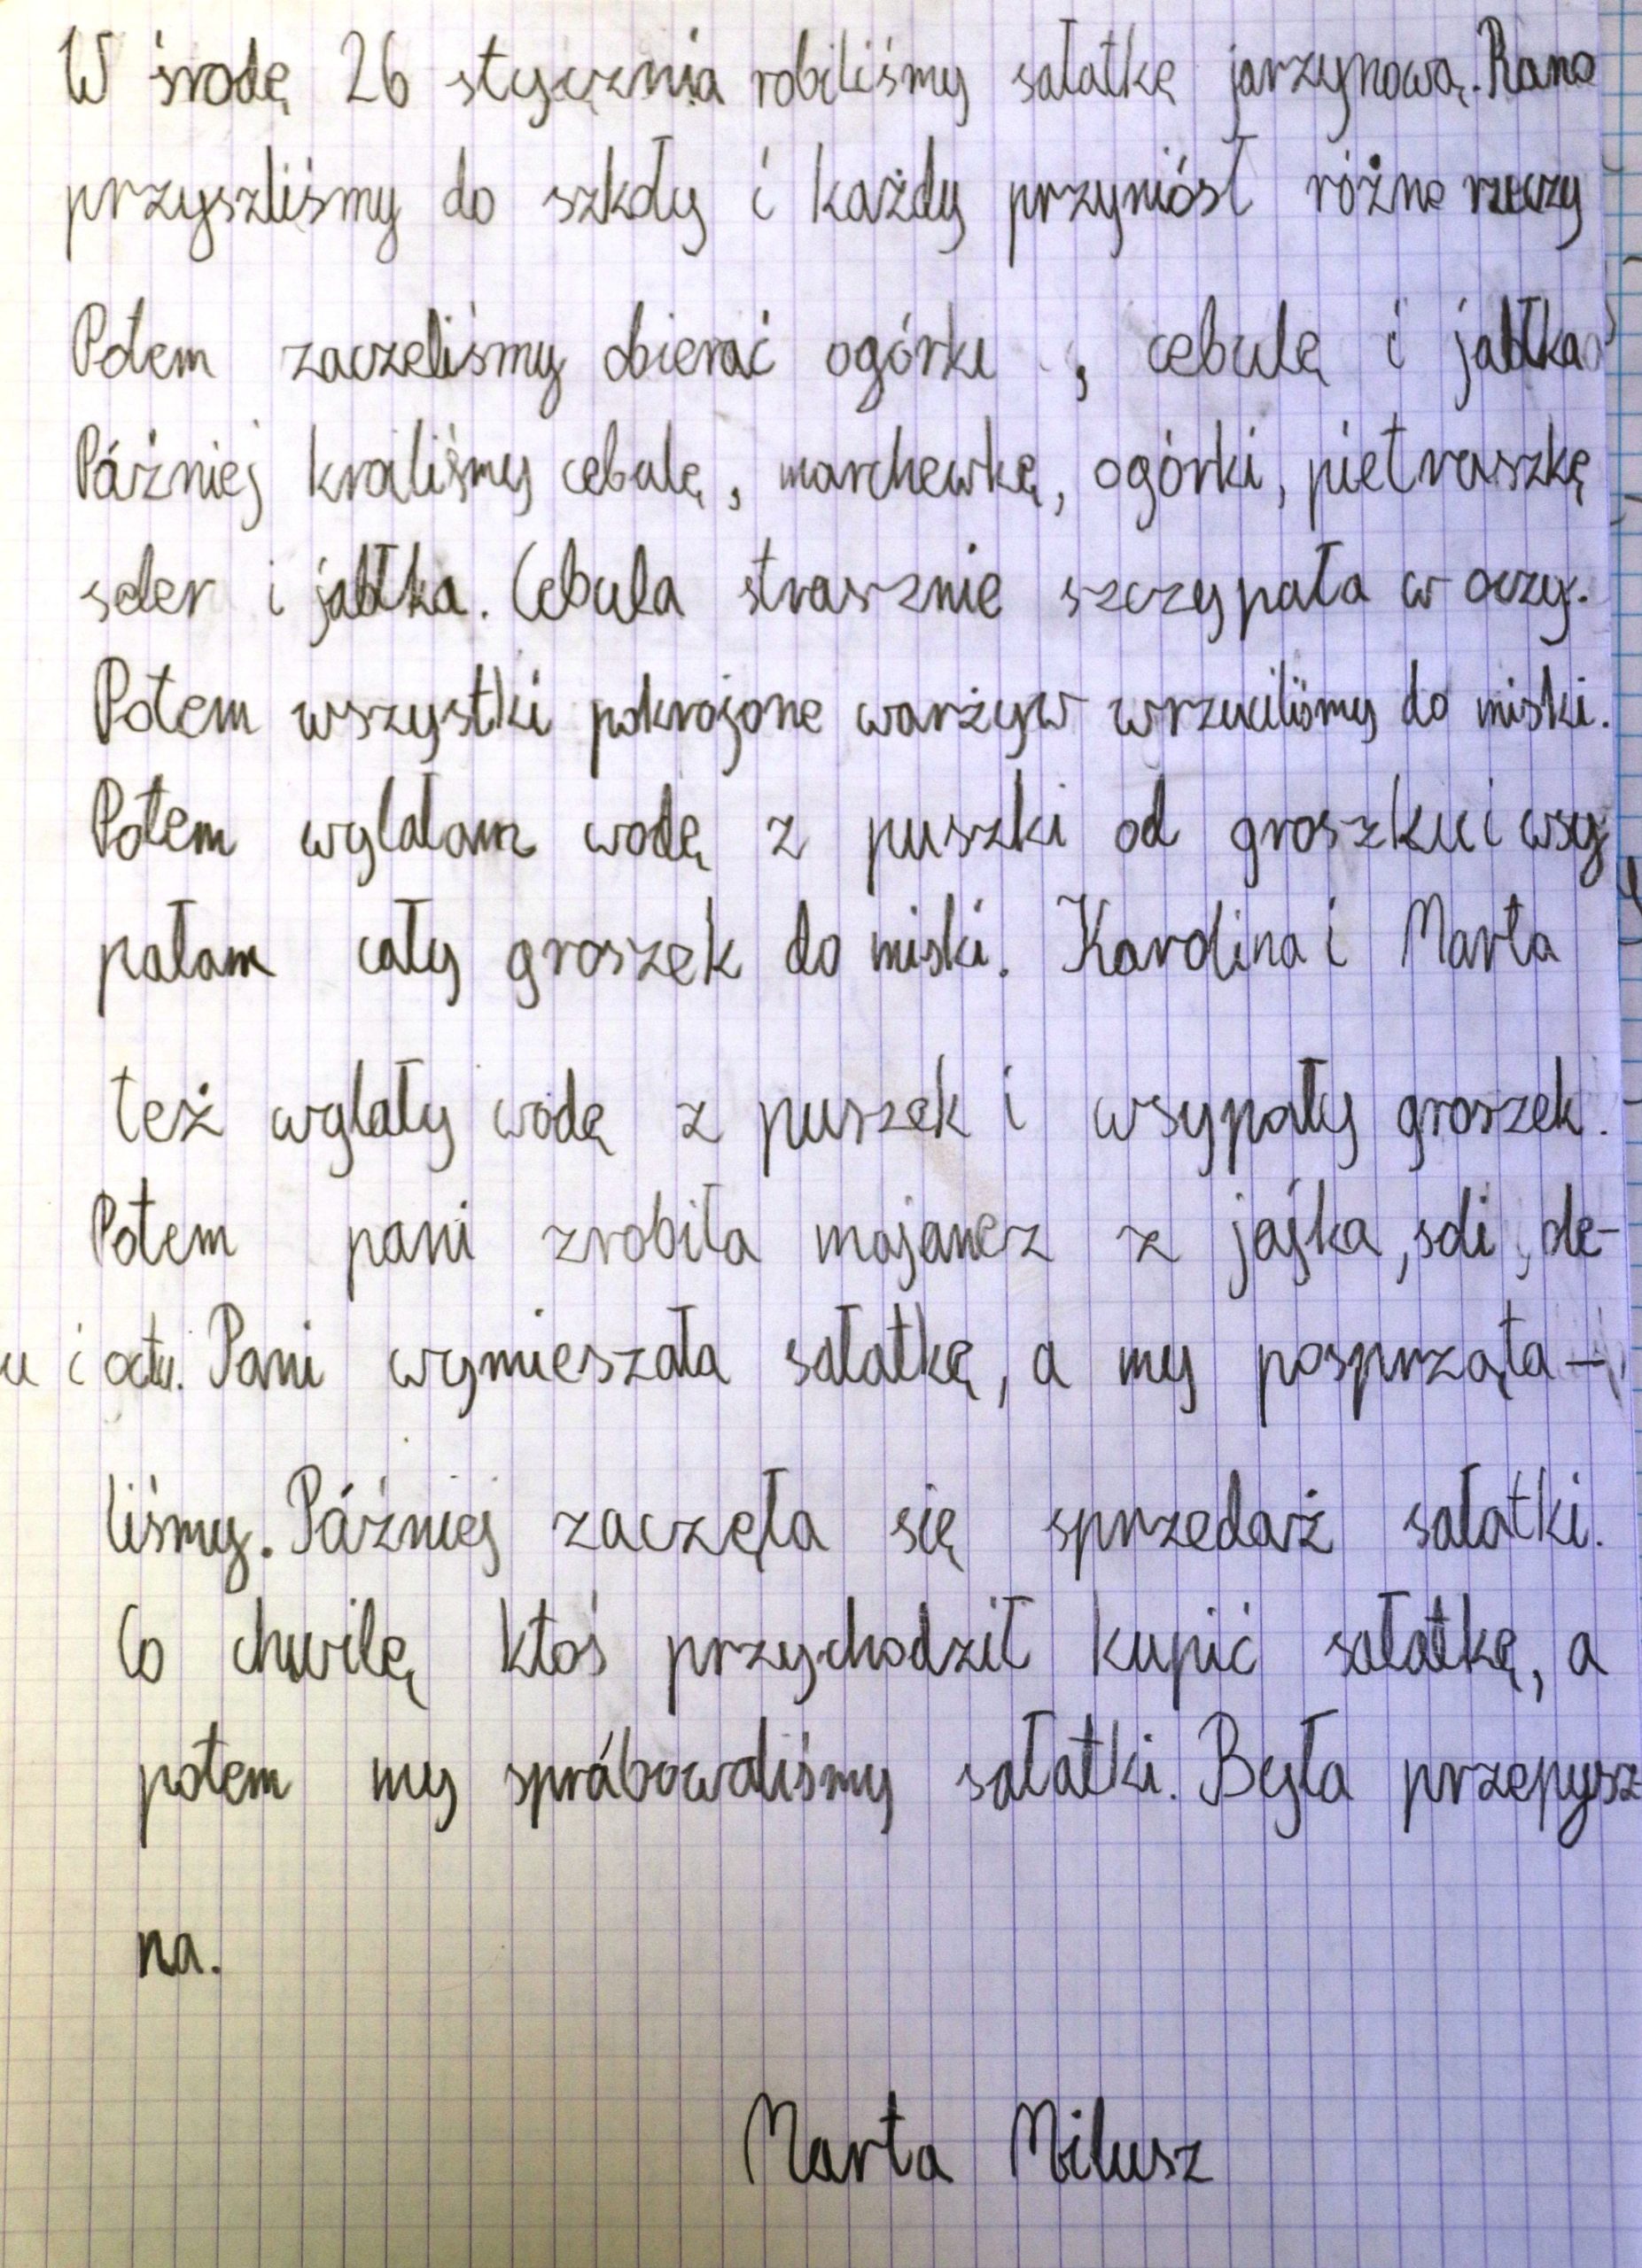 W środę 26 stycznia robiliśmy sałatkę jarzynową. Rano
przyszliśmy do szkoły i każdy przyniósł różne rzeczy
Potem zaczeliśmy obierać ogórki , cebulę i jabłka
Później kroiliśmy cebulę, marchewkę, ogórki, pietruszkę
seler i jabłka. Cebula strasznie szczypała w oczy.
Potem wszystki pokrojone warżyw wrzuciliśmy do miski.
Potem wylałam wodę z puszki od groszku i wsy
pałam cały groszek do miski. Karolina i Marta
też wylały wodę z puszek i wsypały groszek.
Potem pani zrobiła majonez z jajka, soli, ole-
u i octu. Pani wymieszała sałatkę, a my posprząta-
liśmy. Później zaczęła się sprzedaż sałatki.
Co chwilę ktoś przychodził kupić sałatkę, a
potem my spróbowaliśmy sałatki. Była przepysz
na.
Marta Milusz